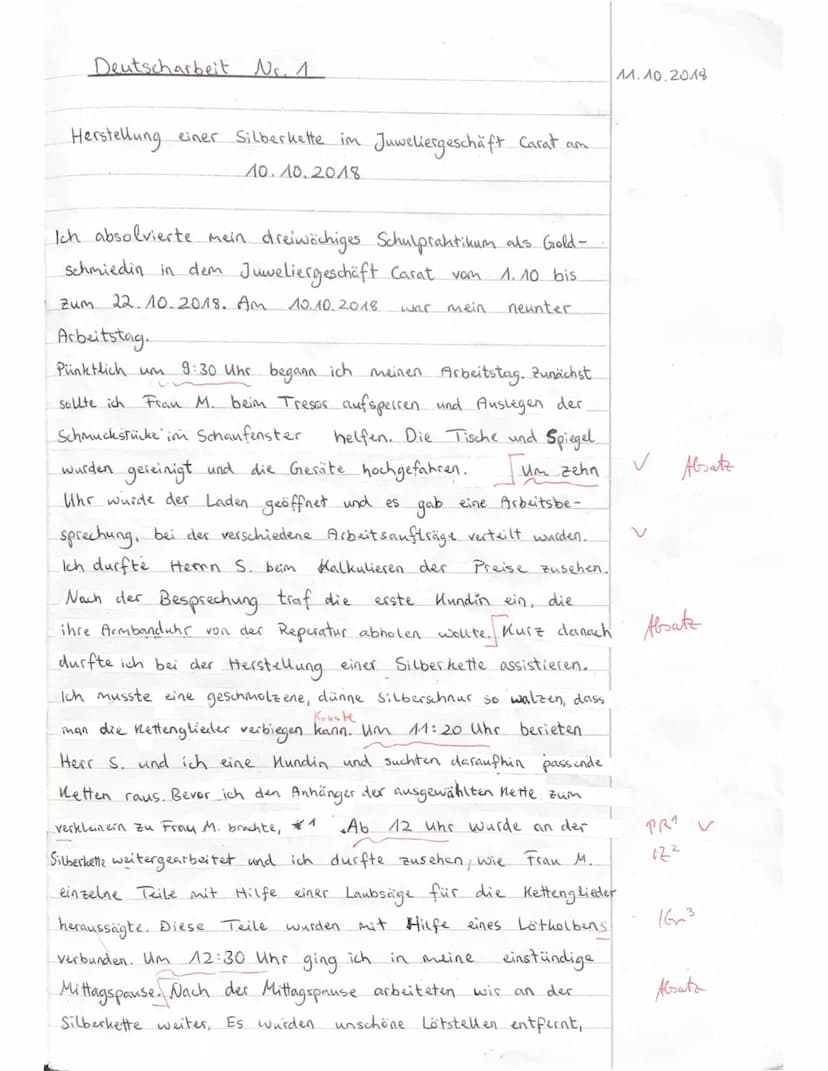 Deutscharbeit Nr. 1
11.10.2018
Herstellung einer Silberkette im Juweliergeschäft Carat am
10.10.2018
Ich absolvierte mein dreiwöchiges Schulpraktikum als Gold-
schmiedin in dem Juweliergeschäft Carat vom 1.10 bis
zum 22.10.2018. Am 10.10.2018 war mein neunter
Arbeitstag.
Pünktlich um 9:30 Uhr begann ich meinen Arbeitstag. Zunächst
sollte ich Frau M. beim Tresor aufsperren und Auslegen der
Schmuckstücke im Schaufenster helfen. Die Tische und Spiegel
wurden gereinigt und die Geräte hochgefahren. Um zehn √ Absatz
Uhr wurde der Laden geöffnet und es gab eine Arbeitsbe-
sprechung, bei der verschiedene Arbeitsaufträge verteilt wurden. √
Ich durfte Herrn S. beim Kalkulieren der Preise zusehen.
Nach der Besprechung traf die erste Kundin ein, die
ihre Armbanduhr von der Reperatur abholen wollte. Kurz danach Absatz
durfte ich bei der Herstellung einer Silberkette assistieren.
Ich musste eine geschmolzene, dünne Silberschnur so walzen, dass
konnte
man die Kettenglieder verbiegen kann. Um 11:20 Uhr berieten
Herr S. und ich eine Kundin und suchten daraufhin passende
Ketten raus. Bevor ich den Anhänger der ausgewählten Kette zum
verkleinern zu Frau M. brachte, *1 . Ab 12 Uhr wurde an der PR¹ √
Silberkette weitergearbeitet und ich durfte zusehen, wie Frau M. 1Z²
einzelne Teile mit Hilfe einer Laubsäge für die Kettenglieder
heraussägte. Diese Teile wurden mit Hilfe eines Lötkolbens 1Gr³
verbunden. Um 12:30 Uhr ging ich in meine einstündige
Mittagspause. Nach der Mittagspause arbeiteten wir an der Absatz
Silberkette weiter. Es wurden unschöne Lötstellen entfernt,